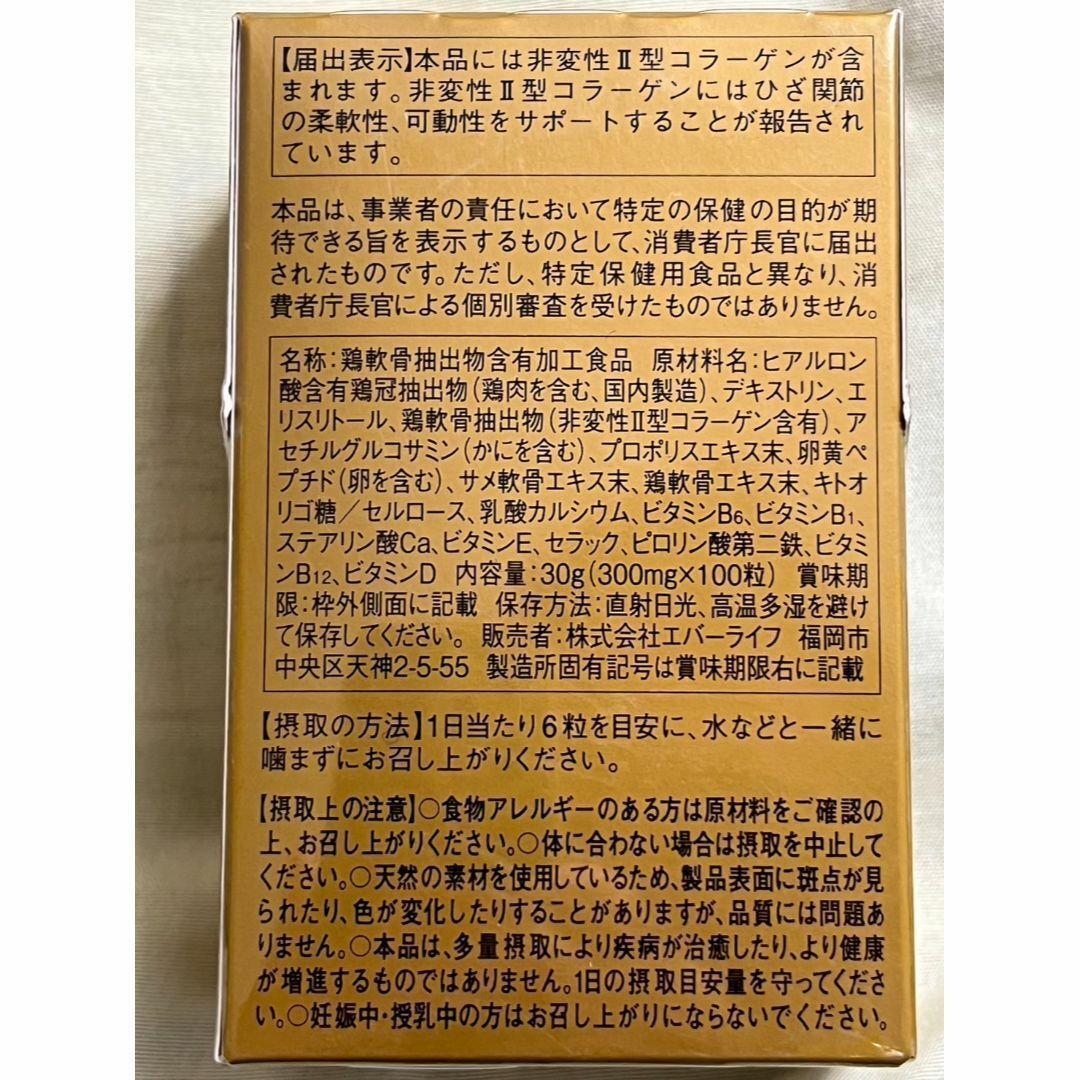 【届出表示】本品には非変性Ⅱ型コラーゲンが含
まれます。非変性Ⅱ型コラーゲンにはひざ関節
の柔軟性、可動性をサポートすることが報告され
ています。
本品は、事業者の責任において特定の保健の目的が期
待できる旨を表示するものとして、消費者庁長官に届出
されたものです。ただし、特定保健用食品と異なり、消
費者庁長官による個別審査を受けたものではありません。
名称：鶏軟骨抽出物含有加工食品 原材料名：ヒアルロン
酸含有鶏冠抽出物（鶏肉を含む、国内製造）、デキストリン、エ
リスリトール、鶏軟骨抽出物（非変性Ⅱ型コラーゲン含有）、ア
セチルグルコサミン（かにを含む）、プロポリスエキス末、卵黄ペ
プチド（卵を含む）、サメ軟骨エキス末、鶏軟骨エキス末、キトオ
リゴ糖／セルロース、乳酸カルシウム、ビタミンB6、ビタミンB1、
ステアリン酸Ca、ビタミンE、セラック、ピロリン酸第二鉄、ビタミ
ンB12、ビタミンD 内容量：30g（300mg×100粒） 賞味期
限：枠外側面に記載 保存方法：直射日光、高温多湿を避け
て保存してください。 販売者：株式会社エバーライフ 福岡市
中央区天神2-5-55 製造所固有記号は賞味期限右に記載
【摂取の方法】1日当たり6粒を目安に、水などと一緒に
噛まずにお召し上がりください。
【摂取上の注意】○食物アレルギーのある方は原材料をご確認の
上、お召し上がりください。○体に合わない場合は摂取を中止して
ください。○天然の素材を使用しているため、製品表面に斑点が見
られたり、色が変化したりすることがありますが、品質には問題あ
りません。○本品は、多量摂取により疾病が治癒したり、より健康
が増進するものではありません。1日の摂取目安量を守ってくださ
い。○妊娠中・授乳中の方はお召し上がりにならないでください。